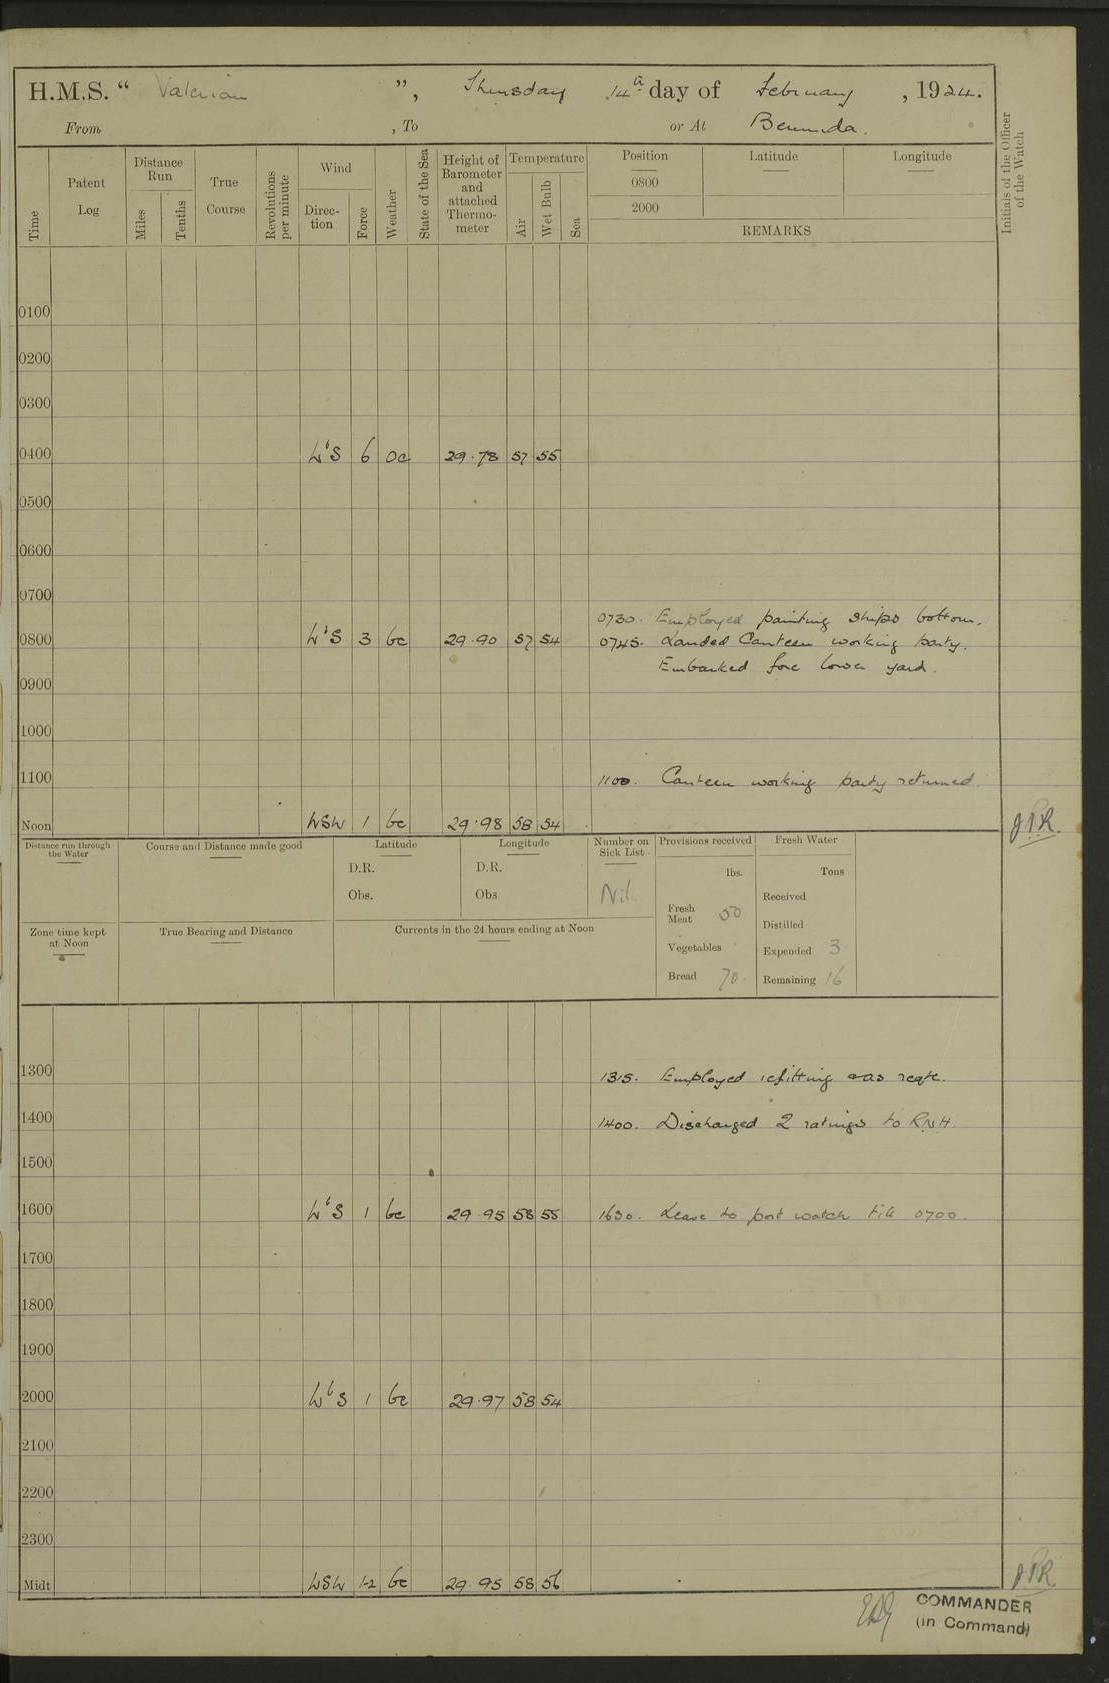 H.M.S. " Valerian ", Thursday 14th day of February, 1924.
From , To or At Bermuda.
Time
Patent Log
Distance Run
Miles
Tenths
True Course
Revolutions per minute
Wind
Direction
Force
Weather
State of the Sea
Height of Barometer and attached Thermometer
Temperature
Air
Wet Bulb
Sea
Position
0800
2000
Latitude
Longitude
REMARKS
Initials of the Officer of the Watch
0100
0200
0300
0400 WbS 6 oc 29.78 57 55
0500
0600
0700
0730. Employed painting ships bottom.
0800 WbS 3 bc 29.90 57 54 0745. Landed Canteen working party.
Embarked fore lower yard.
0900
1000
1100 1100. Canteen working party returned.
Noon WSW 1 bc 29.98 58 54 JPR.
Distance run through the Water
Course and Distance made good
Latitude
D.R.
Obs.
Longitude
D.R.
Obs
Number on Sick List
Nil
Provisions received
lbs.
Fresh Meat 50
Vegetables
Bread 70
Fresh Water
Tons
Received
Distilled
Expended 3
Remaining 16
Zone time kept at Noon
True Bearing and Distance
Currents in the 24 hours ending at Noon
1300 1315. Employed refitting as reqte.
1400 1400. Discharged 2 ratings to RNH.
1500
1600 WbS 1 bc 29.95 58 55 1630. Leave to port watch till 0700.
1700
1800
1900
2000 WbS 1 bc 29.97 58 54
2100
2200
2300
Midt WSW 1-2 bc 29.95 58 56 JPR
COMMANDER
(in Command)